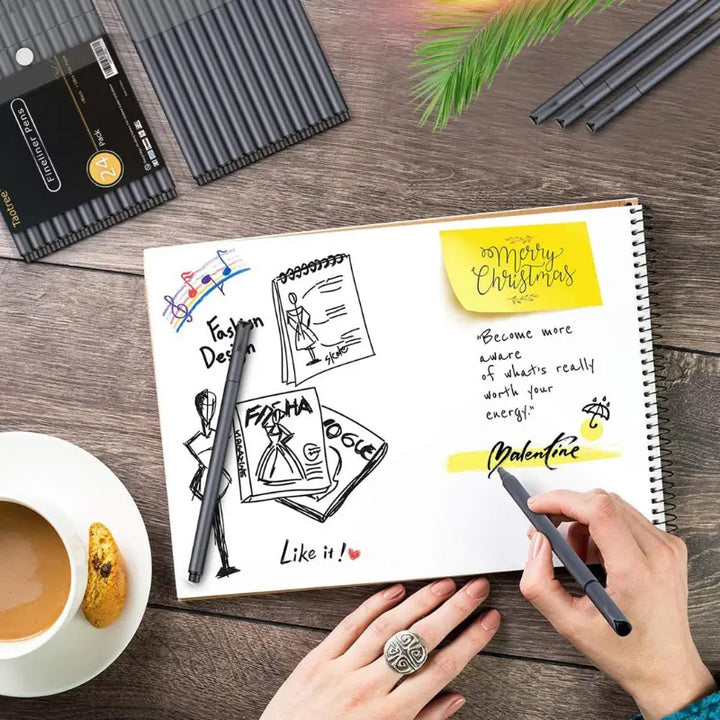 Taotree
Fineliner Pens
24
Pack
Merry
Christmas
Fashion
Design
Skate
"Become more
aware
of what's really
worth your
energy."
FASHA
MAGAZINE
VOGUE
Malentine
Like it!